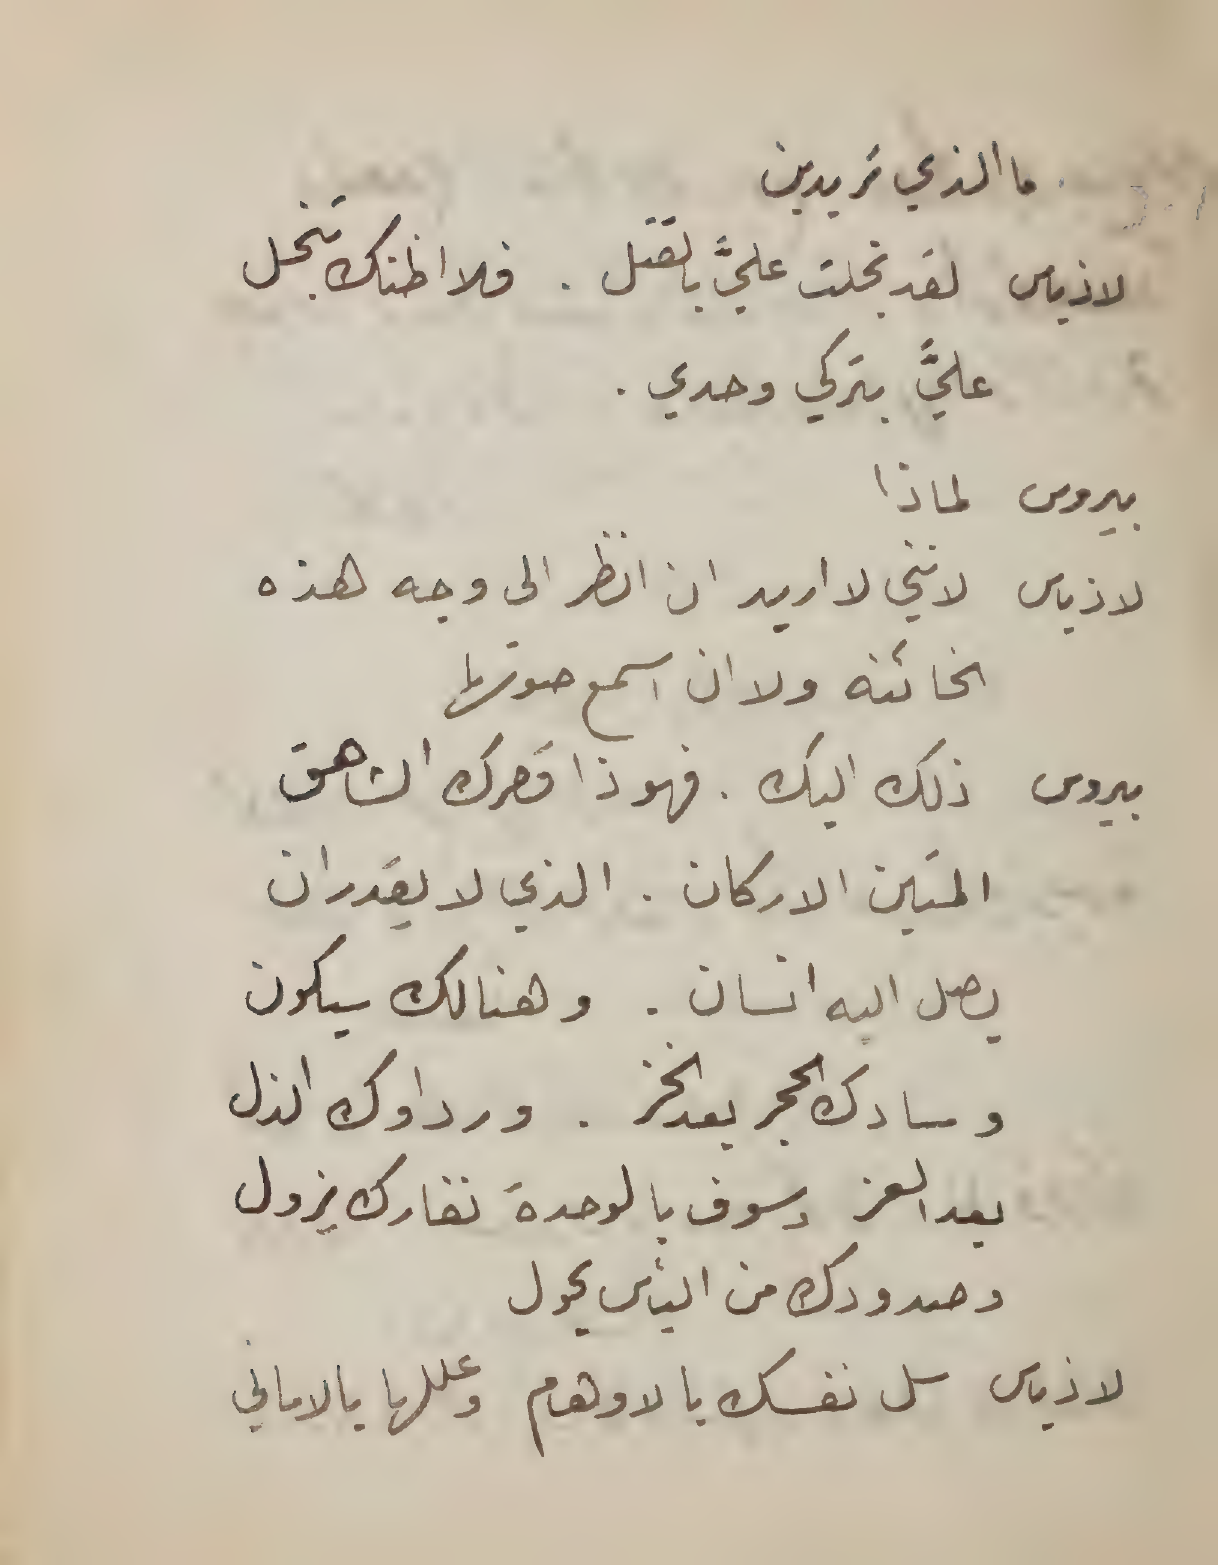 ما الذي تريدين
لاذياس لقد بخلت عليَّ بالقتل . فلا اظنك تبخل
عليَّ بتركي وحدي .
بيروس لماذا
لاذياس لانني لا اريد ان انظر الى وجه هذه
الخائنه ولا ان اسمع صوتها
بيروس ذلك اليك . فهوذا قصرك الشاهق
المتين الاركان . الذي لا يقدر ان
يصل اليه انسان . وهنالك سيكون
وسادك الحجر بعد الخز . ورداوك الذل
بعد العز وسوف بالوحدة نفارك يزول
وصدودك من اليأس يحول
لاذياس سل نفسك بالاوهام وعللها بالاماني